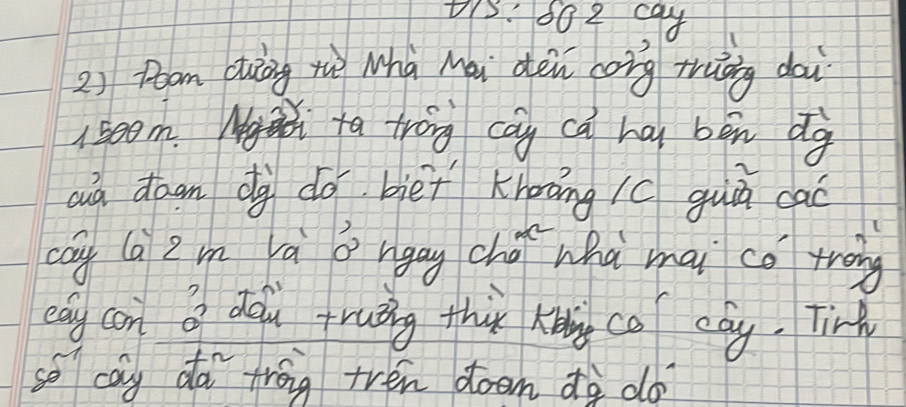 Đ/S: 802 cây
2) Đoạn đường từ Nhà Mai đến cổng trường dài
1500m. Người ta trồng cây cả hai bên đg
của đoạn đg đó. biết khoảng /C giữa các
cây là 2 m và ở ngay chỗ nhà mai có trồng
cây còn ở đầu trường thì không có cây. Tính
số cây đã trồng trên đoạn đg đó